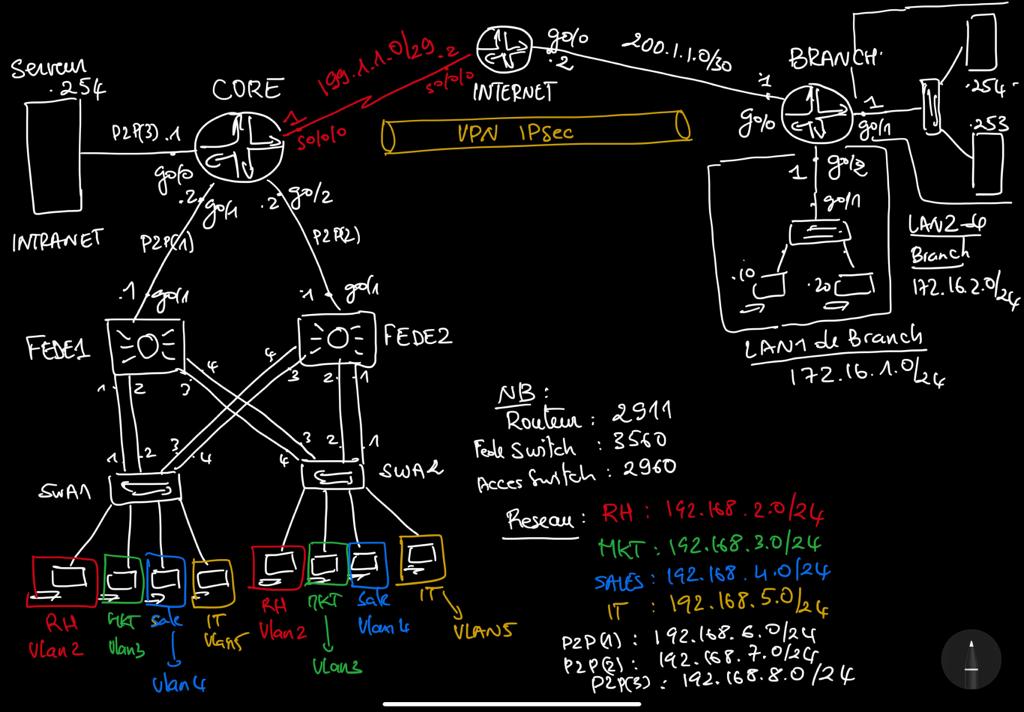 Serveur
.254
INTRANET
P2P(3) .1
g0/0
CORE
.1
s0/0/0
199.1.1.0/29
.2
s0/0/0
INTERNET
g0/0
.2
200.1.1.0/30
VPN IPSec
BRANCH
.1
g0/0
.1
g0/1
.254
.253
1
g0/2
g0/1
.10
.20
LAN2 de
Branch
172.16.2.0/24
LAN1 de Branch
172.16.1.0/24
.2
g0/1
P2P(1)
.2
g0/2
P2P(2)
.1
g0/1
.1
g0/1
FEDE1
FEDE2
1
2
3
4
4
3
2
1
1
2
3
4
3
4
2
1
SWA1
SWA2
RH
Vlan2
MKT
Vlan3
Sale
Vlan4
IT
Vlan5
RH
Vlan2
MKT
Vlan3
Sale
Vlan4
IT
VLAN5
NB :
Routeur : 2911
Fede Switch : 3560
Acces Switch : 2960
Reseau :
RH : 192.168.2.0/24
MKT : 192.168.3.0/24
SALES : 192.168.4.0/24
IT : 192.168.5.0/24
P2P(1) : 192.168.6.0/24
P2P(2) : 192.168.7.0/24
P2P(3) : 192.168.8.0/24